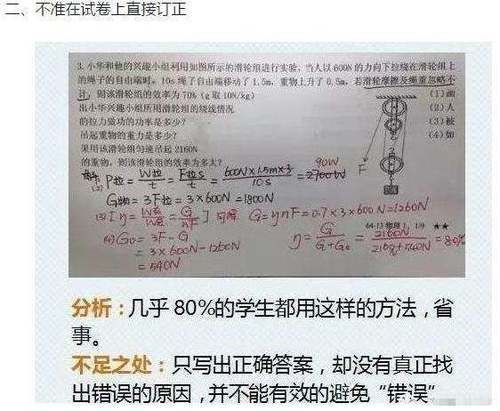 二、不准在试卷上直接订正
3.小华和他的兴趣小组利用如图所示的滑轮组进行实验,当人以600N的力向下拉绕在滑轮组上
的绳子的自由端时,10s绳子自由端移动了1.5m,重物上升了0.5m,若滑轮摩擦及绳重忽略不
计,则该滑轮组的效率为70%(g取10N/kg)
(1)画
出小华兴趣小组所用滑轮组的绕线情况
(2)人
的拉力做功的功率是多少?
(3)被
吊起重物的重力是多少?
(4)如
果用该滑轮组匀速吊起2160N
的重物,则该滑轮组的效率为多大?
F
90W
P拉=W拉/t=F拉s/t=600N×1.5m×3/10s=2700W
G物=3F拉=3×600N=1800N
(3)[η=W有/W总=G/nF]可得 G=ηnF=0.7×3×600N=1260N
(4)G动=3F-G
=3×600N-1260N
=540N
η=G/G+G动=2160N/2160N+540N=80%
物理 1, 1/9 ★★
分析:几乎80%的学生都用这样的方法,省
事。
不足之处:只写出正确答案,却没有真正找
出错误的原因,并不能有效的避免“错误”